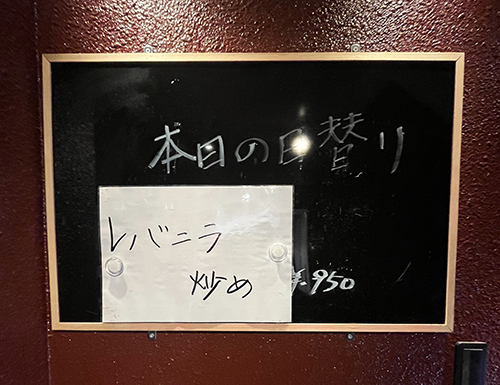 本日の日替り
レバニラ
炒め
¥950